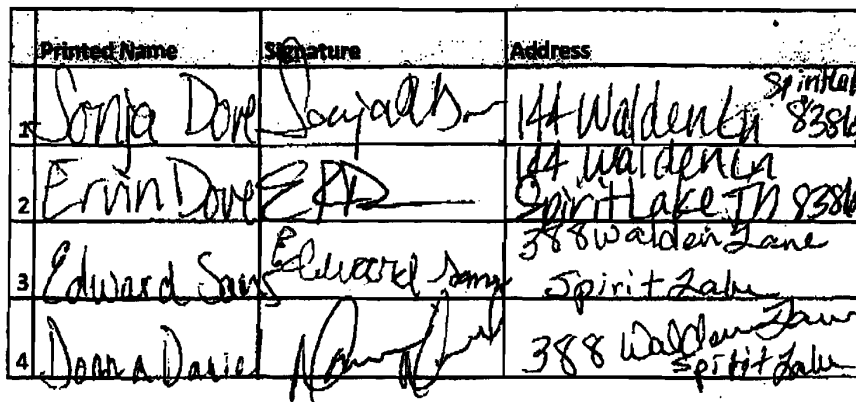 Printed Name Signature Address
1 Sonja Dove 144 Walden Ln Spirit Lake 8386
2 Ervin Dove 144 Walden Ln
Spirit Lake ID 8386
3 Edward Sans Edward Sans 388 Walden Lane
Spirit Lake
4 Donna Daniel 388 Walden Lane
Spirit Lake